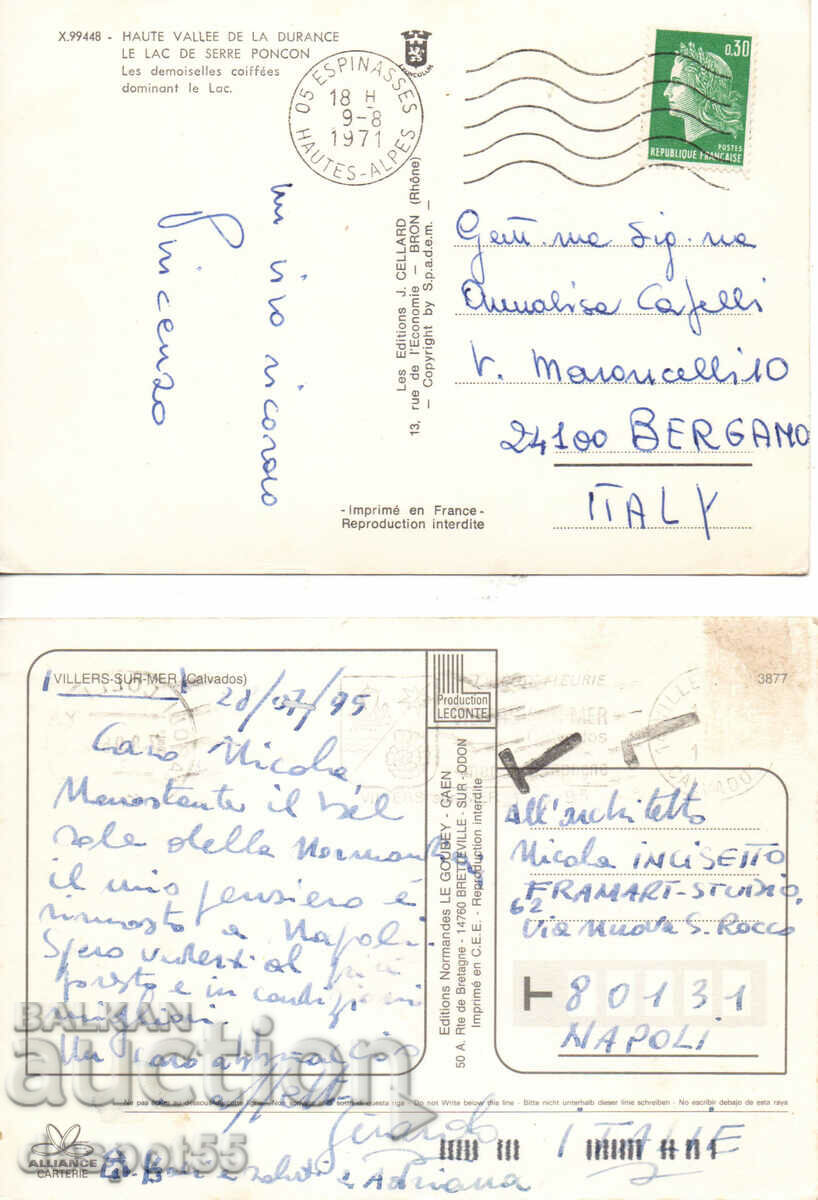 X.99448 - HAUTE VALLEE DE LA DURANCE
LE LAC DE SERRE PONCON
Les demoiselles coiffées
dominant le Lac.
05 ESPINASSES
18 H
9-8
1971
HAUTES-ALPES
0,30
POSTES
REPUBLIQUE FRANÇAISE
un vivo ricordo
Vincenzo
Les Editions J. CELLARD
13, rue de l'Economie - BRON (Rhône)
- Copyright by S.p.a.d.e.m. -
Gent.ma Sig.na
Annalisa Cafelli
V. Maroncelli 10
24100 BERGAMO
ITALY
- Imprimé en France -
Reproduction interdite
VILLERS-SUR-MER (Calvados)
3877
Production
LECONTE
28/07/95
Caro Nicola
Nonostante il bel
sole della Normandia
il mio pensiero è
rimasto a Napoli.
Spero vederti al più
presto e in condizioni
migliori.
Un caro abbraccio
Gerardo
Adriana
Editions Normandes LE GOUBEY - CAEN
50 A. Rte de Bretagne - 14760 BRETTEVILLE - SUR - ODON
Imprimé en C.E.E. - Reproduction interdite
T
All'architetto
Nicola INCISETTO
FRAMART-STUDIO
62
Via Nuova S. Rocco
T 80131
NAPOLI
ITALIE
Do not Write below this line - Bitte nicht unterhalb dieser linie schreiben - No escribir debajo de esta raya
ALLIANCE
CARTERIE
BALKAN
auction
spot55